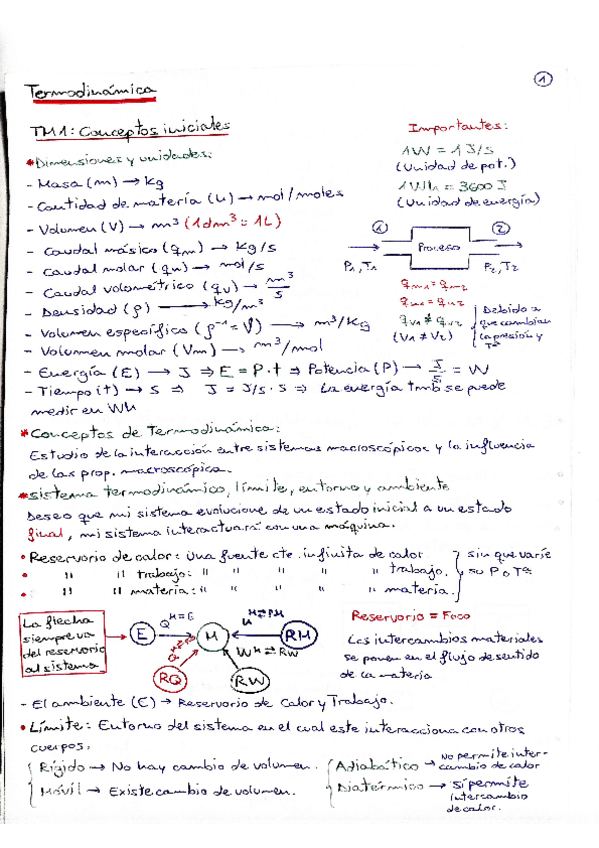 1
Termodinámica
TM1: Conceptos iniciales
Importantes:
* Dimensiones y unidades:
1W = 1 J/s
(Unidad de pot.)
- Masa (m) → Kg
1Wh = 3600 J
- Cantidad de materia (n) → mol/moles
(Unidad de energía)
- Volumen (V) → m³ (1dm³ = 1L)
- Caudal másico (qm) → Kg/s
① Proceso ②
- Caudal molar (qn) → mol/s
P1, T1 P2, T2
- Caudal volumétrico (qv) → m³/s
qm1 = qm2
- Densidad (ρ) → kg/m³
qn1 = qn2
- Volumen específico (ρ⁻¹ = V) → m³/Kg
qv1 ≠ qv2
(V1 ≠ V2)
Debido a
que cambian
la presión y
Tª
- Volumen molar (Vm) → m³/mol
- Energía (E) → J ⇒ E = P·t ⇒ Potencia (P) → J/s = W
- Tiempo (t) → s ⇒ J = J/s · s ⇒ La energía tmb se puede
medir en Wh
* Conceptos de Termodinámica:
Estudio de la interacción entre sistemas macroscópicos y la influencia
de las prop. macroscópica.
* Sistema termodinámico, límite, entorno y ambiente
Deseo que mi sistema evolucione de un estado inicial a un estado
final, mi sistema interactuará con una máquina.
• Reservorio de calor: Una fuente cte. infinita de calor
• " " trabajo: " " " " trabajo.
• " " materia: " " " " materia.
sin que varíe
su P o Tª
La flecha
siempre va
del reservorio
al sistema
E
Q M⇄E
M
RM
W M⇄RW
RQ
RW
Reservorio = Foco
Los intercambios materiales
se ponen en el flujo de sentido
de la materia
- El ambiente (E) → Reservorio de Calor y Trabajo.
• Límite: Entorno del sistema en el cual este interacciona con otros
cuerpos.
Rígido → No hay cambio de volumen.
Móvil → Existe cambio de volumen.
Adiabático → No permite inter-
cambio de calor
Diatérmico → sí permite
intercambio
de calor.